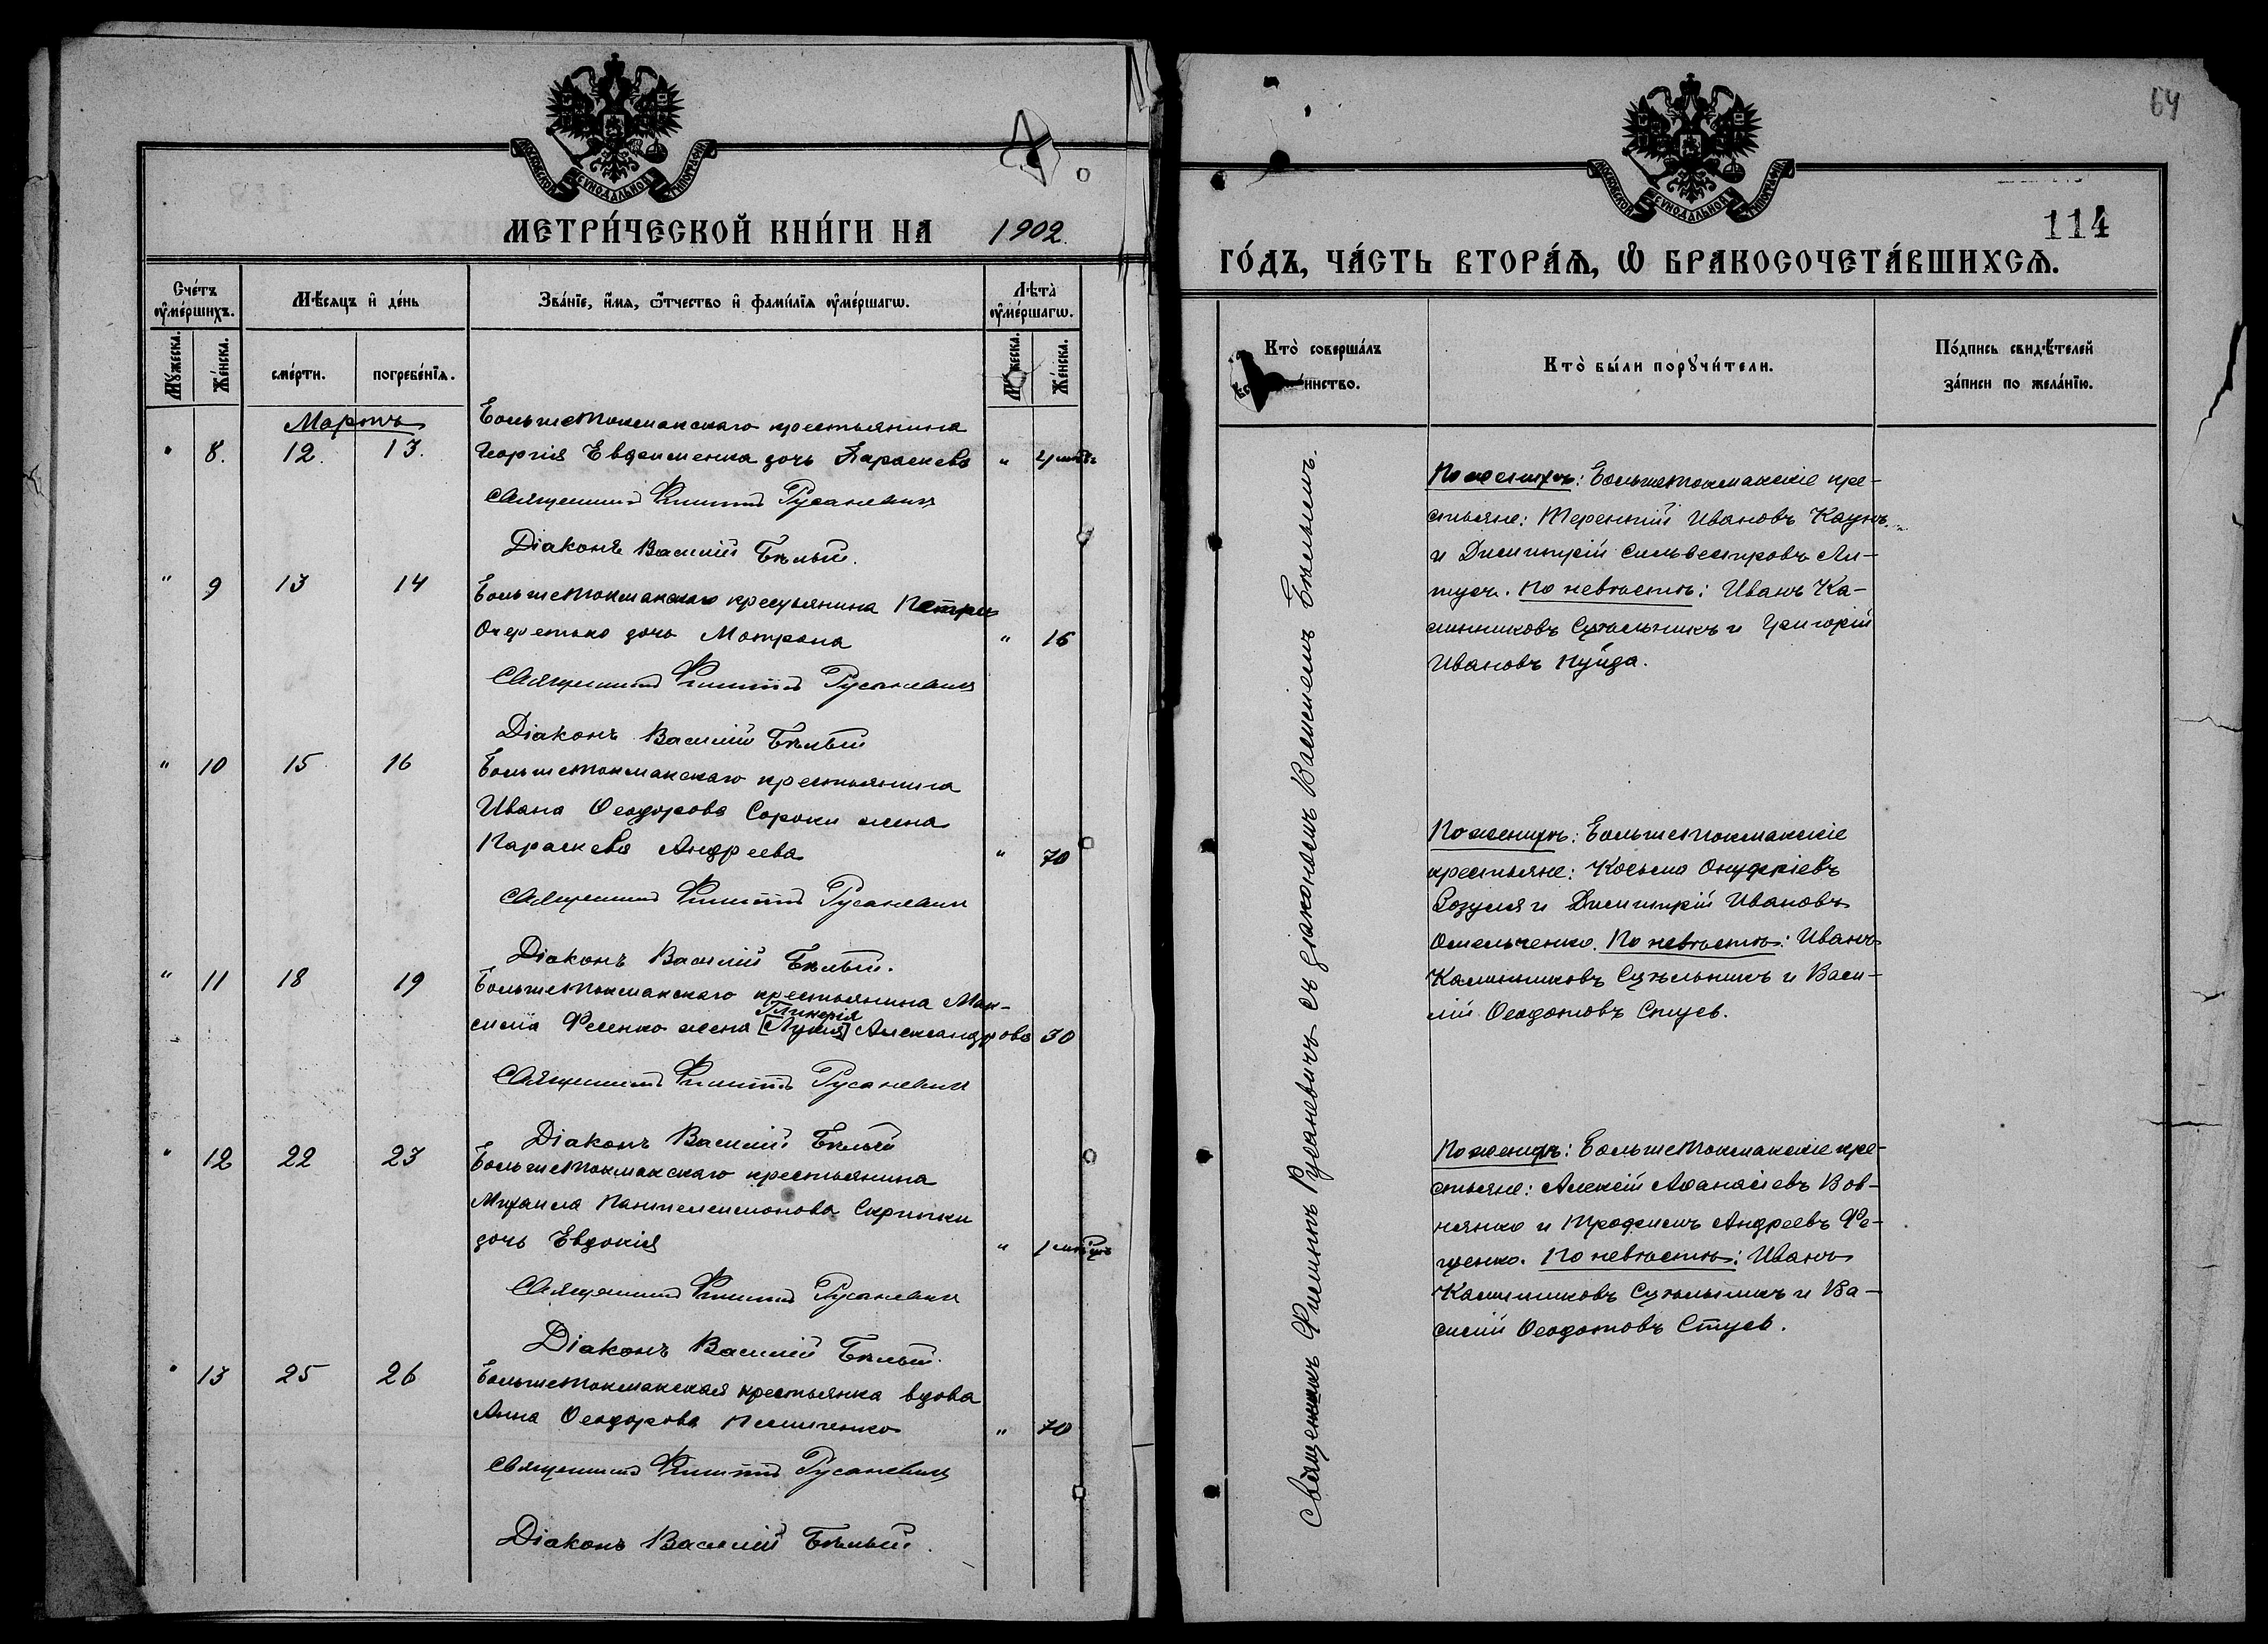 МОСКОВСКОЙ СѴНОДАЛЬНОЙ ТИПОГРАФІИ
МЕТРИ́ЧЕСКОЙ КНИ́ГИ НА 1902
Сче́тъ ᲂу҆ме́ршихъ.
Мѣ́сѧцъ и҆ де́нь
Зва́нїе, и҆́мѧ, ѻ҆́тчество и҆ фами́лїѧ ᲂу҆ме́ршагѡ.
Лѣ́та ᲂу҆ме́ршагѡ.
Мꙋ́жеска.
Же́нска.
сме́рти.
погребе́нїѧ.
Мꙋ́жеска.
Же́нска.
Мартъ
Большетокмакскаго крестьянина
" 8. 12. 13. Георгія Евдоименка дочь Параскева "
Священникъ Филиппъ Русаневич
Діаконъ Василій Бѣлый.
" 9 13 14 Большетокмакскаго крестьянина Петра
дочь Матрона " 16
Священникъ Филиппъ Русаневич
Діаконъ Василій Бѣлый
" 10 15 16 Большетокмакскаго крестьянина
Ивана Ѳеодорова Сороки жена
Параскева Андреева " 70
Священникъ Филиппъ Русаневич
Діаконъ Василій Бѣлый.
" 11 18 19 Большетокмакскаго крестьянина Мак-
Гликерія
сима Фесенко жена [Лукія] Александрова 30
Священникъ Филиппъ Русаневич
Діаконъ Василій Бѣлый
" 12 22 23 Большетокмакскаго крестьянина
Михаила Пантелеимонова Скрипки
дочь Евдокія " 1 мѣсяцъ
Священникъ Филиппъ Русаневич
Діаконъ Василій Бѣлый.
" 13 25 26 Большетокмакская крестьянка вдова
Анна Ѳеодорова "  70
Священникъ Филиппъ Русаневич
Діаконъ Василій Бѣлый.
64
МОСКОВСКОЙ СѴНОДАЛЬНОЙ ТИПОГРАФІИ
114
ГО́ДЪ, ЧА́СТЬ ВТОРА́Ѧ, Ѽ БРАКОСОЧЕТА́ВШИХСѦ.
Кто̀ соверша́лъ
Кто̀ бы́ли порꙋчи́тели.
По́дпись свидѣ́телей
за́писи по жела́нїю.
Священникъ Филиппъ Русаневичъ съ діакономъ Василіемъ Бѣлымъ.
По женихѣ: Большетокмакскіе кре-
стьяне: Терентій Ивановъ Каунъ
и Димитрій Сильвестровъ Ал-
тухъ. По невѣстѣ: Иванъ Ка-
линниковъ Сухельникъ и Григорій
Ивановъ Пуйда.
По женихѣ: Большетокмакскіе
крестьяне: Косьма Онуфріевъ
Розумъ и Димитрій Ивановъ
Омельченко. По невѣстѣ: Иванъ
Калинниковъ Сухельникъ и Васи-
лій Ѳеодотовъ Стусь.
По женихѣ: Большетокмакскіе кре-
стьяне: Алексій Аѳанасіевъ Вов-
нянко и Трофимъ Андреевъ Фе-
щенко. По невѣстѣ: Иванъ
Калинниковъ Сухельникъ и Ва-
силій Ѳеодотовъ Стусь.